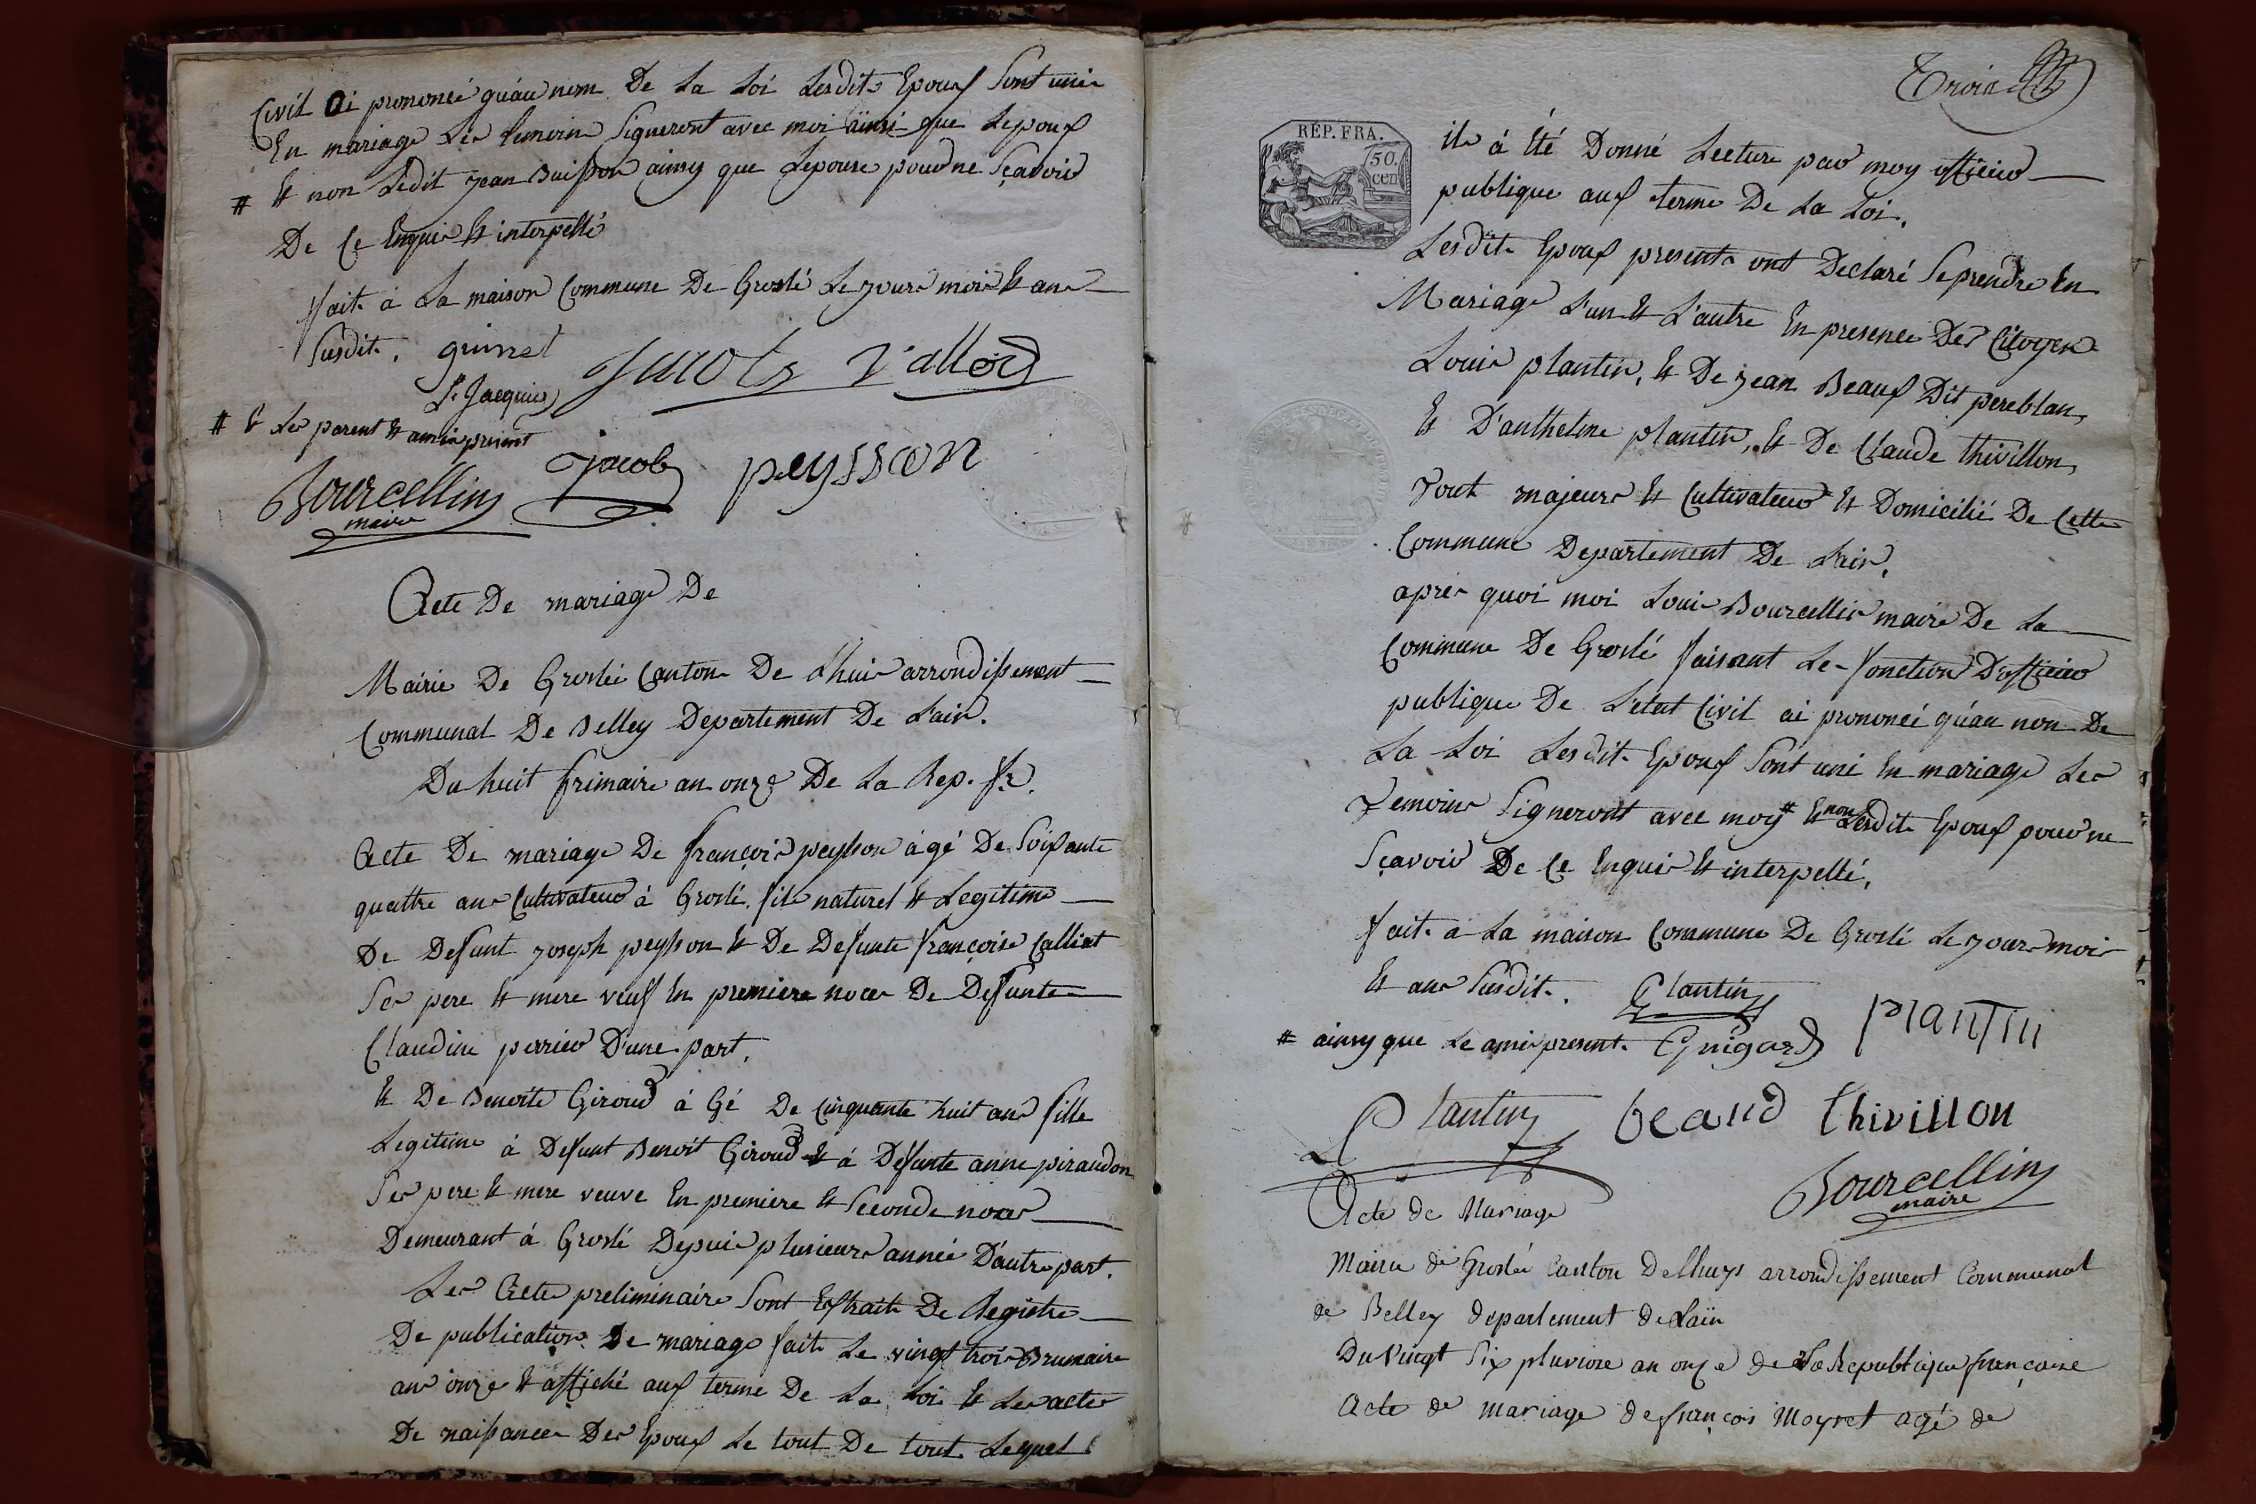 Civil ai prononcé qu'au nom De La Loi Lesdits Epoux Sont unis
En mariage Les temoins Signeront avec moi ainsi que Lepoux
# & non Ledit jean Buisson ainsy que Lepouse pour ne Sçavoir
De Ce Enquis & interpellé
fait à La maison Commune De Groslé Le jours mois & ans
Susdits. guinet
Jacob Vallod
St Jacquis
# & Les parent & amis present
Bourcellin Jacob peysson
maire
Acte De mariage De
Mairie De Groslée Canton De Lhuis arrondissement
Communal De Belley Departement De L'ain.
Du huit frimaire an onze De La Rep. fr.
Acte De mariage De françois peysson âgé De Soixante
quattre ans Cultivateur à Groslé. fils naturel & Legitime
De Defunt joseph peysson & De Defunte françoise Calliat
Ses pere & mere veuf En premiere noces De Defunte
Claudine perrier D'une part.
& De Benoite Giroud âGé De Cinquante huit ans fille
Legitime à Defunt Benoit Giroud & à Defunte anne piraudon
Ses pere & mere veuve En premiere & Seconde noces
Demeurant à Groslé Depuis plusieurs année D'autre part.
Les Actes preliminaire Sont Extraits De Registre
De publications De mariage fait Le vingt trois Brumaire
an onze & affiché aux terme De La Loi & Les actes
De naissances Des Epoux Le tout De tout Lequel
Trois
RÉP. FRA.
50.
cen
ils à Eté Donné Lecture par moy officier
publique aux terme De La Loi.
Lesdits Epoux presents ont Declaré Se prendre En
Mariage L'un & L'autre En presence Des Citoyens
Louis plantin, & De jean Beauf Dit pereblan,
& D'anthelme plantin, & De Claude thivillon,
Tout majeurs & Cultivateur & Domicilié De Cette
Commune Departement De L'ain.
après quoi moi Louis Bourcellin maire De La
Commune De Groslé faisant Les fonction D'officier
publique De L'etat Civil ai prononcé qu'au nom De
La Loi Lesdits Epoux Sont uni En mariage Les
Temoins Signeront avec moy # & non Lesdits Epoux pour ne
Sçavoir De Ce Enquis & interpellé.
fait à La maison Commune De Groslé Le jours mois
& ans Susdits. Plantin
# ainsy que Le amis present. Guigard plantin
Plantin beaud thivillon
Bourcellin
maire
Acte de Mariage
Mairie de Groslée Canton Delhuys arrondissement Communal
de Belley departement de Lain
Du Vingt Six pluviose an onze de La Republique françoise
Acte de mariage de françois Meyret agé de